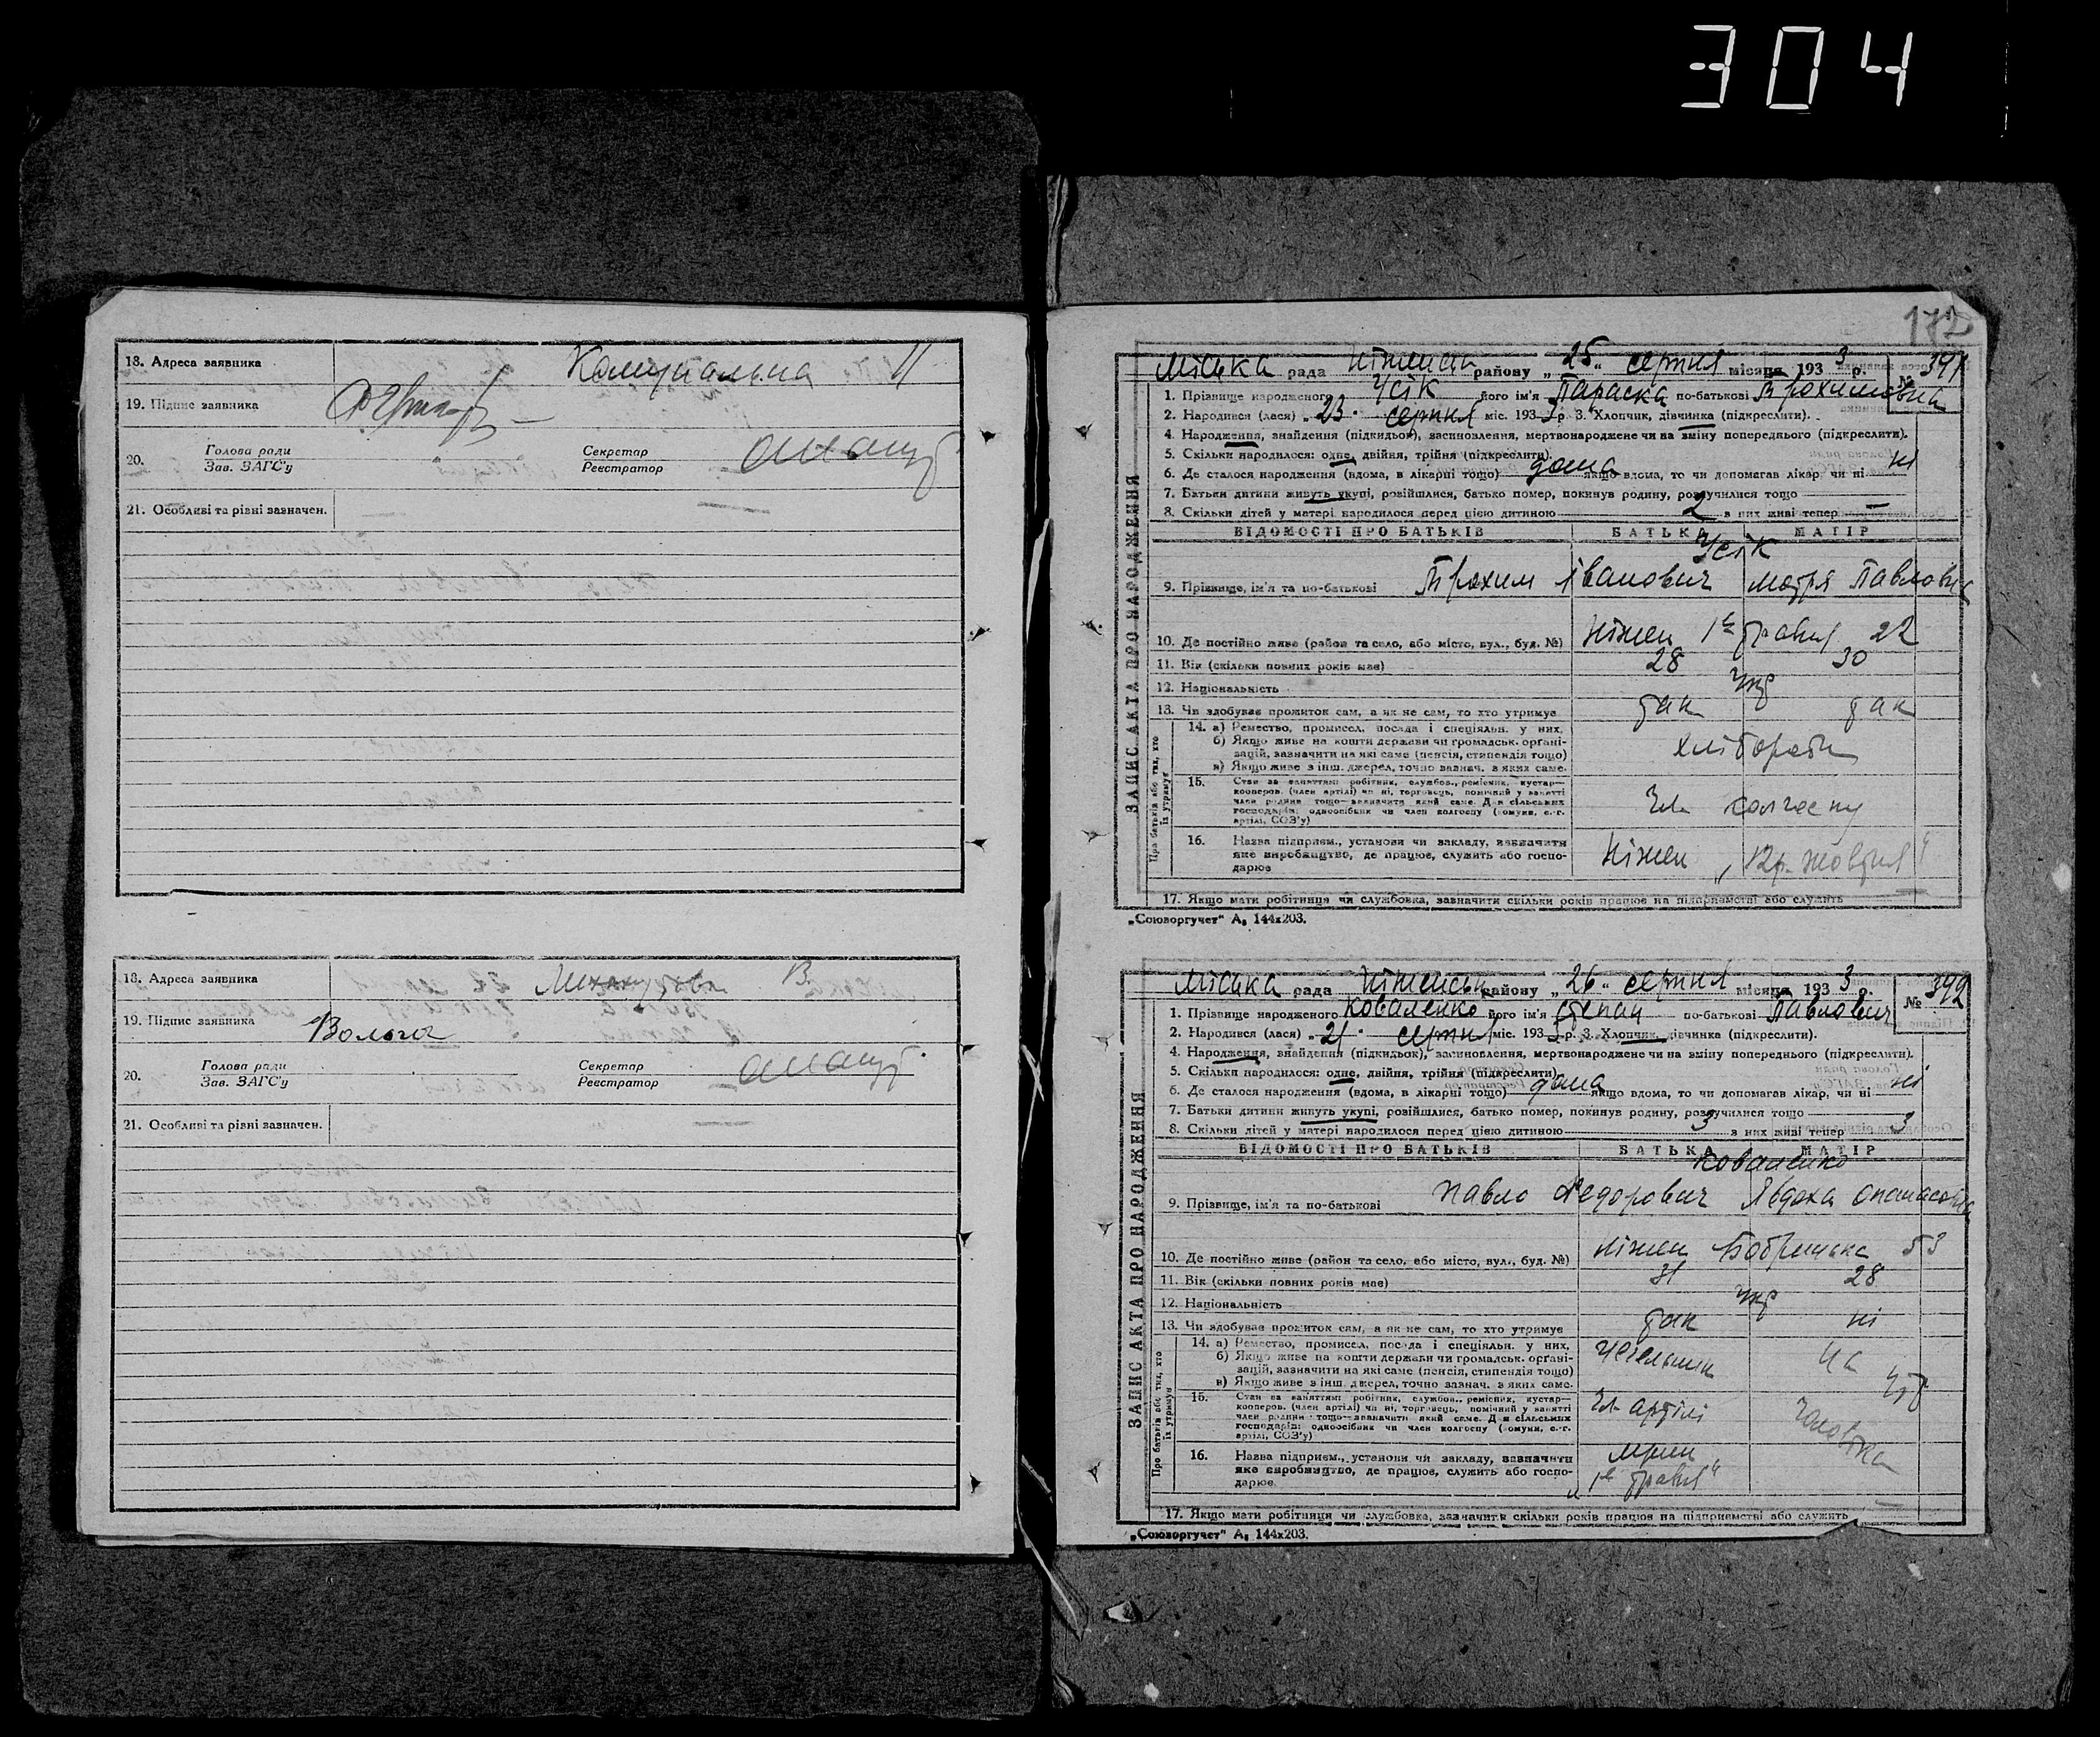 304
18. Адреса заявника Комунальна 11
19. Підпис заявника
20. Голова ради Зав. ЗАГС'у Секретар Реєстратор
21. Особливі та рівні зазначен. —
18. Адреса заявника
19. Підпис заявника Вольга
20. Голова ради Зав. ЗАГС'у Секретар Реєстратор
21. Особливі та рівні зазначен. —
172
ЗАПИС АКТА ПРО НАРОДЖЕННЯ
Міська рада Ніженськ району „25“ серпня місяця 1933 р. № 391
1. Прізвище народженого Усік його ім'я Параска по-батькові Трохимовна
2. Народився (лася) „23“ серпня міс. 1933 р. 3. Хлопчик, дівчинка (підкреслити).
4. Народження, знайдення (підкидьок), засиновлення, мертвонароджене чи на зміну попереднього (підкреслити).
5. Скільки народилося: одне, двійня, трійня (підкреслити).
6. Де сталося народження (вдома, в лікарні тощо) дома якщо вдома, то чи допомагав лікар, чи ні ні
7. Батьки дитини живуть укупі, розвійшлися, батько помер, покинув родину, розлучилися тощо —
8. Скільки дітей у матері народилося перед цією дитиною 2 з них живі тепер —
ВІДОМОСТІ ПРО БАТЬКІВ БАТЬКА МАТІР
Усік
9. Прізвище, ім'я та по-батькові Трохим Іванович Мотря Павловна
10. Де постійно живе (район та село, або місто, вул., буд. №) Ніжен 1е травня 22
11. Вік (скільки повних років має) 28 30
12. Національність Укр
13. Чи здобуває прожиток сам, а як не сам, то хто утримує так так
Про батьків або тих, хто їх утримує
14. а) Ремество, промисел, посада і спеціяльн. у них.
б) Якщо живе на кошти держави чи громадськ. органі-
зацій, зазначити на які саме (пенсія, стипендія тощо) хлібороби
в) Якщо живе з інш. джерел, точно зазнач. з яких саме.
15. Стан за заняттями робітник, службов., ремісник, кустар—
кооперов. (член артілі) чи ні, торговець, помічний у занятті
член родини тощо—зазначити який саме. Для сільських Чл. колгоспу
господарів: одноосібник чи член колгоспу (комуни, с.-г.
артілі, СОЗ'у)
16. Назва підприєм., установи чи закладу, зазначити
яке виробництво, де працює, служить або госпо- Ніжен „12р. жовтня“
дарює
17. Якщо мати робітниця чи службовка, зазначити скільки років працює на підприємстві або служить —
„Союзоргучет“ А₆ 144х203.
ЗАПИС АКТА ПРО НАРОДЖЕННЯ
Міська рада Ніженськ району „26“ серпня місяця 1933 р. № 392
1. Прізвище народженого Коваленко його ім'я Степан по-батькові Павлович
2. Народився (лася) „21“ серпня міс. 1933 р. 3. Хлопчик, дівчинка (підкреслити).
4. Народження, знайдення (підкидьок), засиновлення, мертвонароджене чи на зміну попереднього (підкреслити).
5. Скільки народилося: одне, двійня, трійня (підкреслити)
6. Де сталося народження (вдома, в лікарні тощо) дома якщо вдома, то чи допомагав лікар, чи ні ні
7. Батьки дитини живуть укупі, розвійшлися, батько помер, покинув родину, розлучилися тощо
8. Скільки дітей у матері народилося перед цією дитиною 3 з них живі тепер 3
ВІДОМОСТІ ПРО БАТЬКІВ БАТЬКА МАТІР
Коваленко
9. Прізвище, ім'я та по-батькові Павло Федорович Явдоха Опанасовна
10. Де постійно живе (район та село, або місто, вул., буд. №) Ніжен Бобрицька 53
11. Вік (скільки повних років має) 31 28
12. Національність Укр
13. Чи здобуває прожиток сам, а як не сам, то хто утримує так ні
Про батьків або тих, хто їх утримує
14. а) Ремество, промисел, посада і спеціяльн. у них.
б) Якщо живе на кошти держави чи громадськ. органі-
зацій, зазначити на які саме (пенсія, стипендія тощо)
в) Якщо живе з інш. джерел, точно зазнач. з яких саме. На утр
15. Стан за заняттями робітник, службов., ремісник, кустар—
кооперов. (член артілі) чи ні, торговець, помічний у занятті Чл. артілі
член родини тощо—зазначити який саме. Для сільських чоловіка
господарів: одноосібник чи член колгоспу (комуни, с.-г.
артілі, СОЗ'у)
16. Назва підприєм., установи чи закладу, зазначити
яке виробництво, де працює, служить або госпо-
дарює. „1е травня“
17. Якщо мати робітниця чи службовка, зазначити скільки років працює на підприємстві або служить —
„Союзоргучет“ А₆ 144х203.